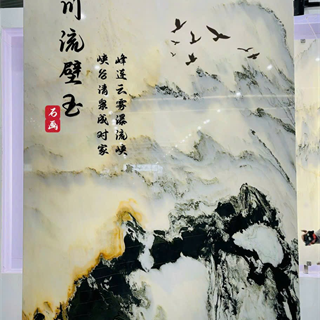 川流壁玉
石画
峰莲云雾瀑流峡
峡谷清泉成对家